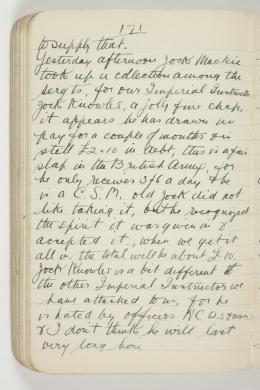 171
to supply that.
Yesterday afternoon Jock Mackie
took up a collection among the
sergts, for our Imperial Instructor
Jock Knowles, a jolly fine chap,
it appears he has drawn no
pay for a couple of months & is
still £2-10 in debt, this is a fair
slap in the British Army, for
he only receives 3/6 a day & he
is a C.S.M. old Jock did not
like taking it, but he recognized
the spirit it was given in &
accepted it, when we get it
all in, the total will be about £10.
Jock Knowles is a bit different to
the other Imperial Instructor we
have attached to us, for he
is hated by officers N.C.O.s & men
& I don't think he will last
very long here